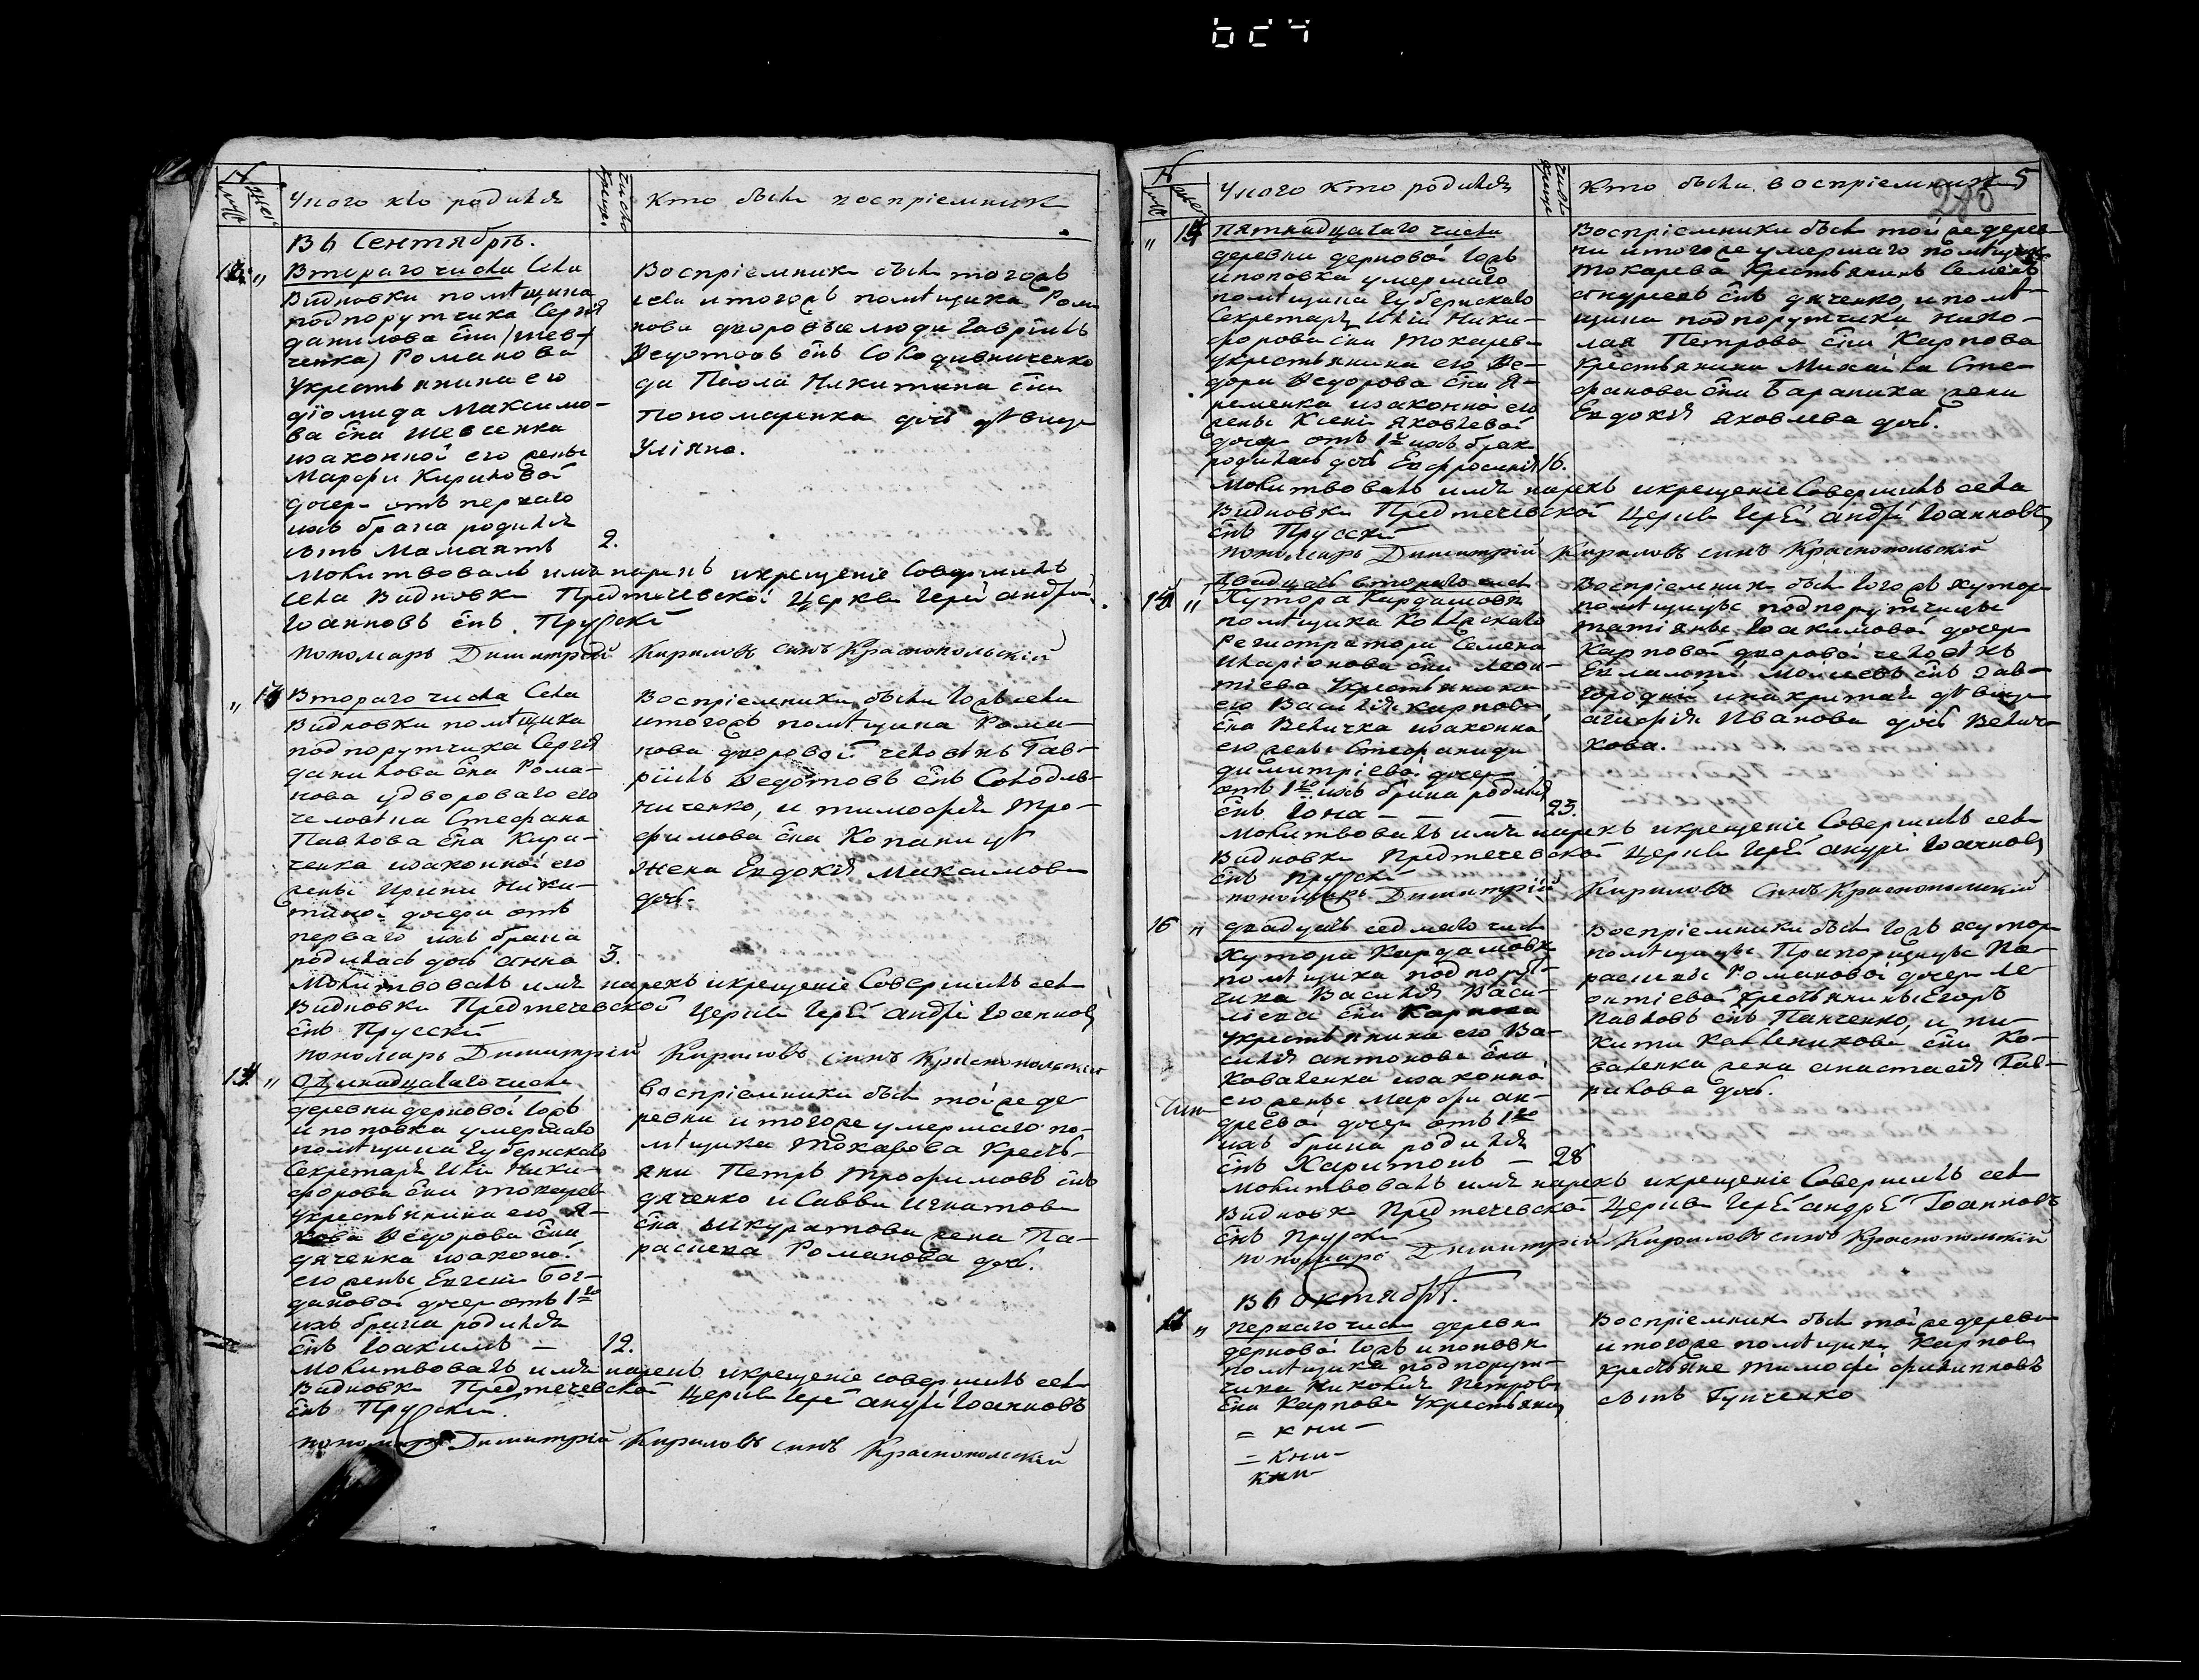 У кого кто родился
Число крещ.
Кто были восприемники
Въ Сентябрѣ.
Втораго числа Села
Видновки помѣщика
подпорутчика Сергія
данилова сна (Шев-
ченка) Романова
укрестьянина его
діомида Максимо-
ва сна Шевченка
изаконной его жены
Марфи Кириловой
дочери отъ перваго
ихъ брака родился
сынъ Мамантъ 2.
Восприемники были тогожъ
села итогожъ помѣщика Рома
нова дворовые люди Гавріилъ
Ѳедотовъ снъ Солодивниченко
да Павла Никитина сна
Пономаренка дочь дѣвица
Уліяна.
Молитвовалъ имя нарекъ икрещеніе Совершилъ
села Видновки Предтечевской Церкви Іерей андрей
Іоанновъ снъ Прускій
пономарь Димитрій Кириловъ синъ Краснопольскій
Втораго числа Села
Видновки помѣщика
подпорутчика Сергія
данилова сна Рома-
нова удвороваго его
человѣка Стефана
Павлова сна Кири-
ченка изаконной его
жены Ирини Ники-
тиной дочери отъ
перваго ихъ брака
родилась дочь анна 3.
Восприемники были тожъ села
итогожъ помѣщика Рома-
нова дворовой человѣкъ Гав-
ріилъ Ѳедотовъ снъ Солодив-
ниченко, и тимофея Тро-
фимова сна
Жена Евдокія Максимова
дочь.
Молитвовалъ имя нарекъ икрещеніе Совершилъ села
Видновки Предтечевской Церкви Іерей андрей Іоанновъ
снъ Прускій
пономарь Димитрій Кириловъ синъ Краснопольскій
Одинадцатаго числа
деревни дерновой тожъ
ипоповка умершаго
помѣщика Губернскаго
Секретаря Иліи Ники-
форова сна токарева
укрестьянина его Я-
кова Ѳедорова сна
дяченка изаконой
его жены Евгеніи Бог-
дановой дочери отъ 1го
ихъ брака родился
снъ Іоакимъ — 12.
Восприемники были тойже де
ревни итогоже умершаго по-
мѣщика Токарева Кресть-
яни Петръ Трофимовъ снъ
дяченко и Савви Игнатова
сна Шкуратова жена Па-
раскева Романова дочь.
Молитвовалъ имя нарекъ икрещеніе совершилъ села
Видновки Предтечевской Церкви Іерей андрей Іоанновъ
снъ Прускій.
пономарь Димитрій Кириловъ синъ Краснопольскій
У кого кто родился
Кто были восприемники 5
285
Пятнадцатаго числа
деревни дерновой тожъ
ипоповка умершаго
помѣщика Губернскаго
Секретаря Иліи Ники-
форова сна Токарева
укрестьянина его Ѳе-
дора Ѳедорова сна Я-
ременка изаконной его
жены Ксеніи Яковлевой
дочери отъ 1го ихъ брака
родилась дочь Евфросинія 16.
Восприемники были тойже дерев
ни итогоже умершаго помѣщика
токарева Крестьянинъ Семенъ
андреевъ снъ дяченко, и помѣ-
щика подпорутчика Нико-
лая Петрова сна Карпова
Крестьянина Михаила Сте-
фанова сна жена
Евдокія Яковлева дочь.
Молитвовалъ имя нарекъ икрещеніе Совершилъ села
Видновки Предтечевской Церкви Іерей андрей Іоанновъ
снъ Прускій
пономарь Димитрій Кириловъ синъ Краснопольскій
Двадцать втораго числа
Хутора Кардашовки
помѣщика Колежскаго
Регистратора Семена
Иларіонова сна Леон-
тіева укрестьянина
его Василія карпова
сна Величка изаконной
его жены Стефаниди
димитріевой дочери
отъ 1го ихъ брака родился
снъ Іона — 23.
Восприемники были тогожъ хутора
помѣщицы подпорутчицы
татіяны Іоакимовой дочери
Карповой дворовой человѣкъ
Евлампій Моисеевъ снъ Зав-
городній дѣвица
агафія Иванова дочь Велич-
кова.
Молитвовалъ имя нарекъ икрещеніе Совершилъ села
Видновки Предтечевской Церкви Іерей андрей Іоанновъ
снъ Прускій
пономарь Димитрій Кириловъ синъ Краснопольскій
16 „ двадцать седмаго числа
Хутора Кардашовки
помѣщика подпорут-
чика Василія Васи-
ліева сна Карпова
укрестьянина его Ва-
силія антонова сна
Коваленка изаконной
его жены Марфи ан-
дреевой дочери отъ 1го
ихъ брака родился
снъ Харитонъ — 28
Восприемники были тожъ хутора
помѣщицы Прапорщицы Па-
раскевы Романовой дочери Ле-
онтіевой крестьянинъ Егоръ
Павловъ снъ Панченко, и ни-
кити сна Ко-
валенка жена анастасія Гав-
рилова дочь.
Молитвовалъ имя нарекъ икрещеніе Совершилъ села
Видновки Предтечевской Церкви Іерей андрей Іоанновъ
снъ Прускій
пономарь Димитрій Кириловъ синъ Краснопольскій
Въ Октябрѣ.
Перваго числа деревни
дерновой тожъ ипоповки
помѣщика подпорут-
чика Николая Петрова
сна Карпова укрестьянина
Восприемники были тойже деревни
итогоже помѣщика Карпова
крестьяне тимофей филиповъ
сынъ Гупченко
= кни-
= кни-
кни-